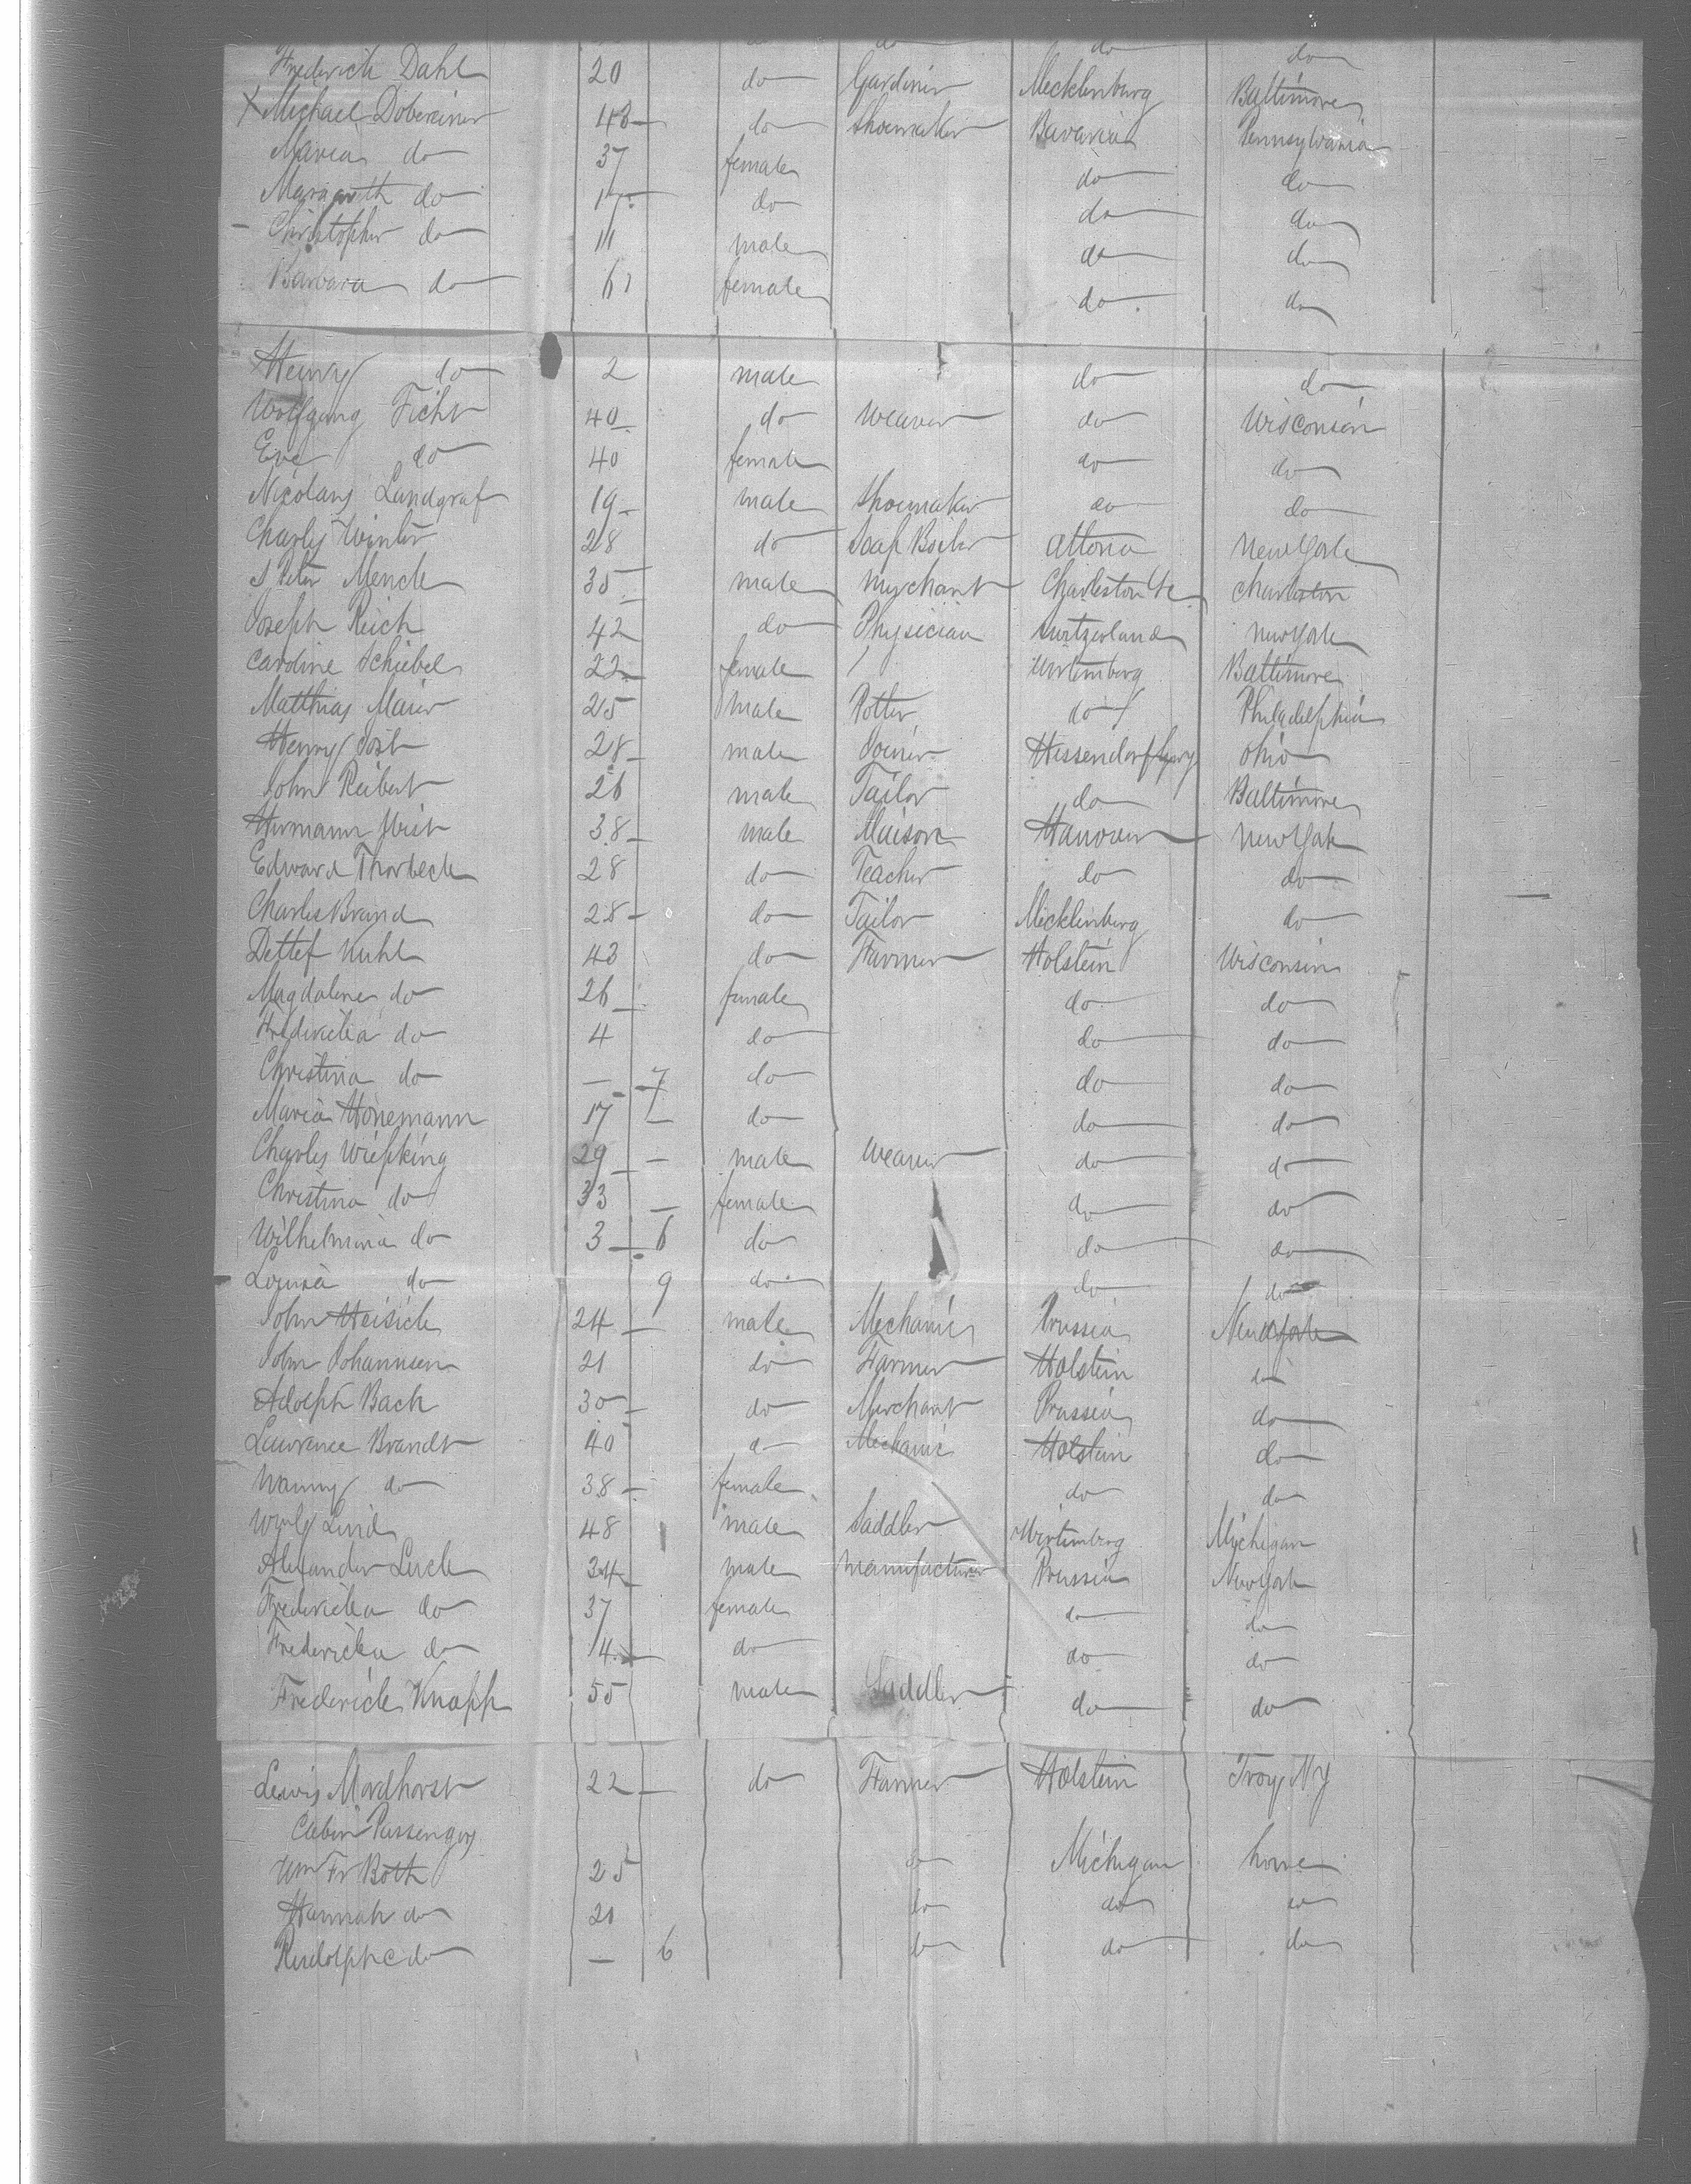 do do do
Frederick Dahl 20 do Gardinir Mecklenburg Baltimore
X Michael Doberainer 48 do Shoemaker Bavaria Pennsylvania
Maria do 37 female do do
Margareth do 17 do do do
Christopher do 11 male do do
Barbara do 6 female do do
Henry do 2 male do do
Wolfgang Ficht 40 do Weaver do Wisconsin
Eve do 40 female do do
Nicolaus Landgraf 19 male Shoemaker do do
Charly Winter 28 do Soap Boiler Altona New York
J Peter Mencke 35 male Merchant Charleston Charleston
Joseph Reich 42 do Physician Switzerland New York
Caroline Schiebel 22 female / Wurtemberg Baltimore
Matthias Maier 25 male Potter do Philadelphia
Henry Jost 28 male Joiner Ohio
John Reibert 26 male Tailor do Baltimore
Hermann 38 male Maison Hanover New York
Edward Thorbeck 28 do Teacher do do
Charles Brand 28 do Tailor Mecklenburg do
Detlef Kuhl 43 do Farmer Holstein Wisconsin
Magdalene do 26 female do do
Fredericka do 4 do do do
Christina do — 7 do do do
Maria Honemann 17 — do do do
Charly Wiepking 29 — male Weaver do do
Christina do 33 — female do do
Wilhelmina do 3 6 do do do
Louisa do 9 do do do
John Heisick 24 — male Mechanic Prussia New York
John Johannsen 21 do Farmer Holstein do
Adolph Bach 30 do Merchant Prussia do
Lawrence Brandt 40 do Mechanic Holstein do
Nanny do 38 female do do
Lind 48 male Saddler Wirtemberg Michigan
Alexander Luck 34 male Manufacturer Prussia New York
Fredericka do 37 female do do
Fredericka do 14 do do do
Frederick Knapp 55 male Saddler do do
Lewis Mordhorst 22 — do Farmer Holstein Troy NY
Cabin Passengers
Wm Fr Both 25 do Michigan home
Hannah do 20 do do do
Rudolph C do — 6 do do do